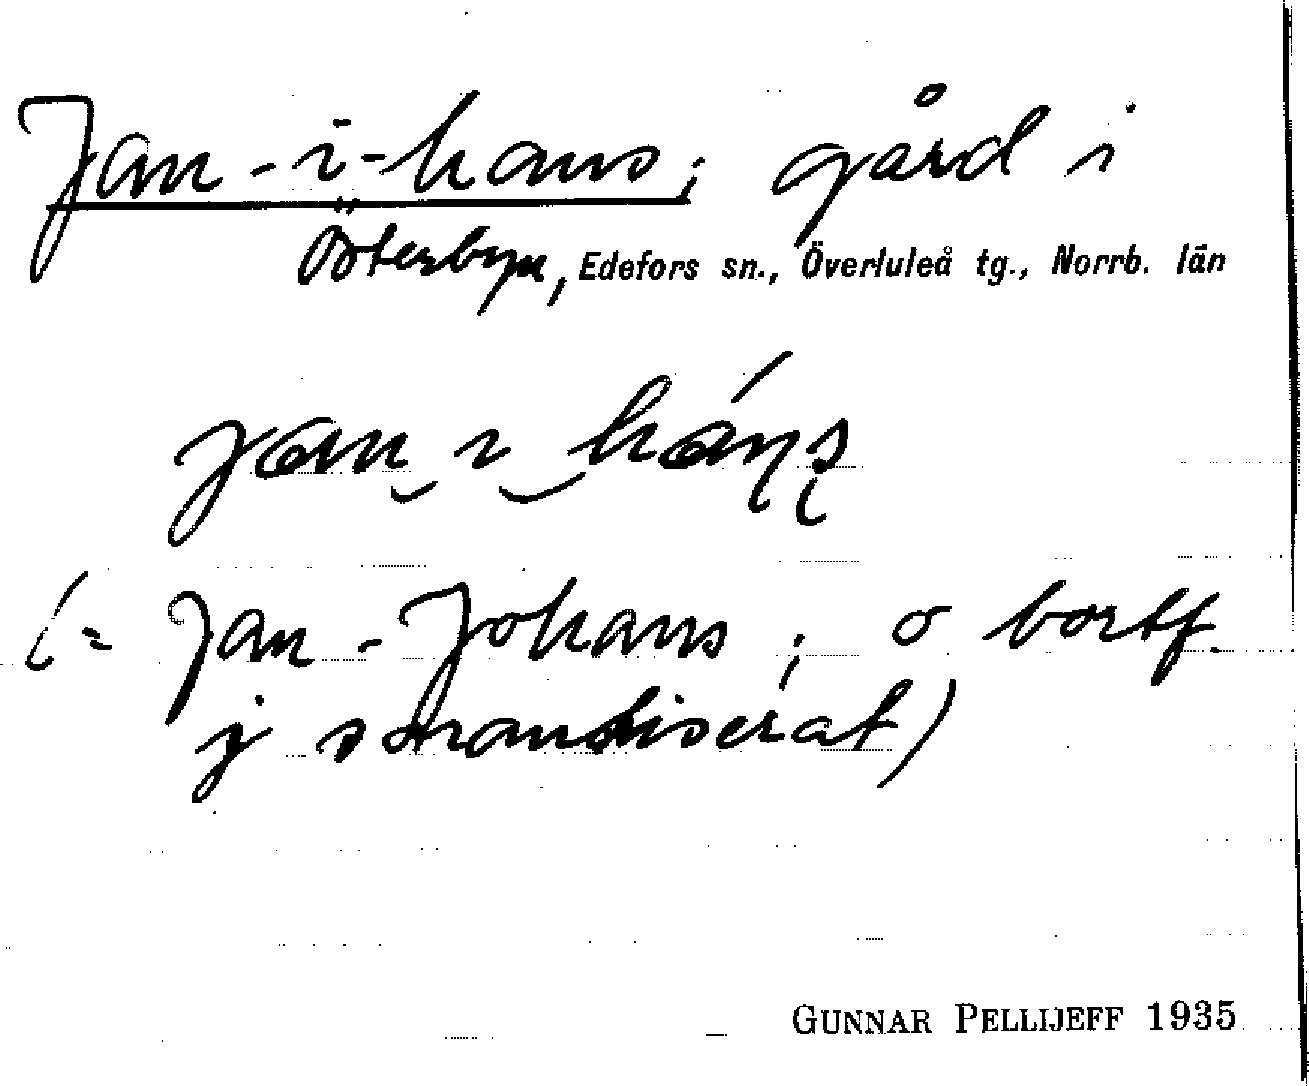 Jan-i-hans; gård i
Österbyn, Edefors sn., Överluleå tg., Norrb. län
jan i hans
(= Jan-Johans; o bortf.
j sonantiserat)
GUNNAR PELLIJEFF 1935